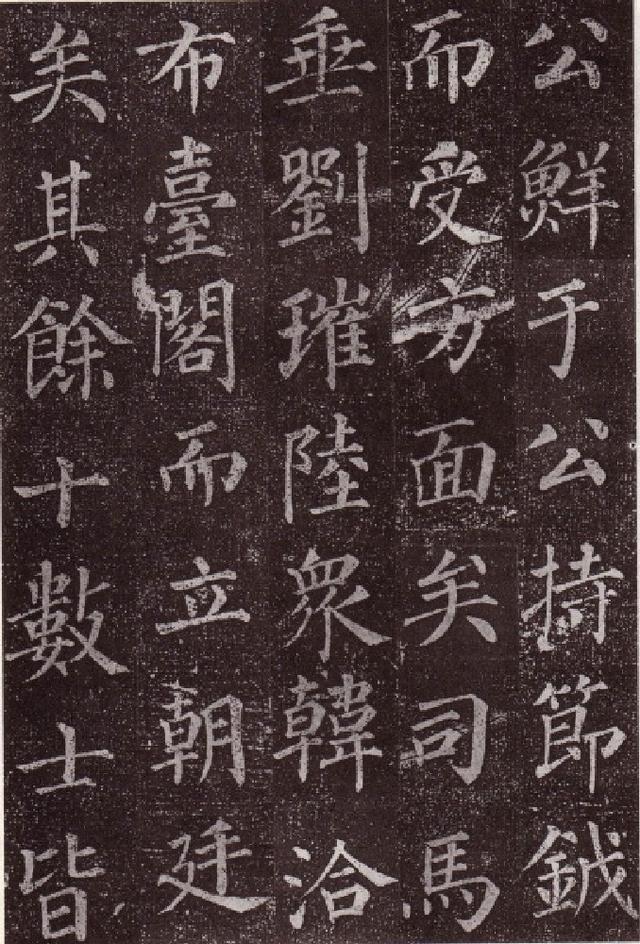 公鮮于公持節鉞
而受方面矣司馬
垂劉璀陸衆韓洽
布臺閣而立朝廷
矣其餘十數士皆